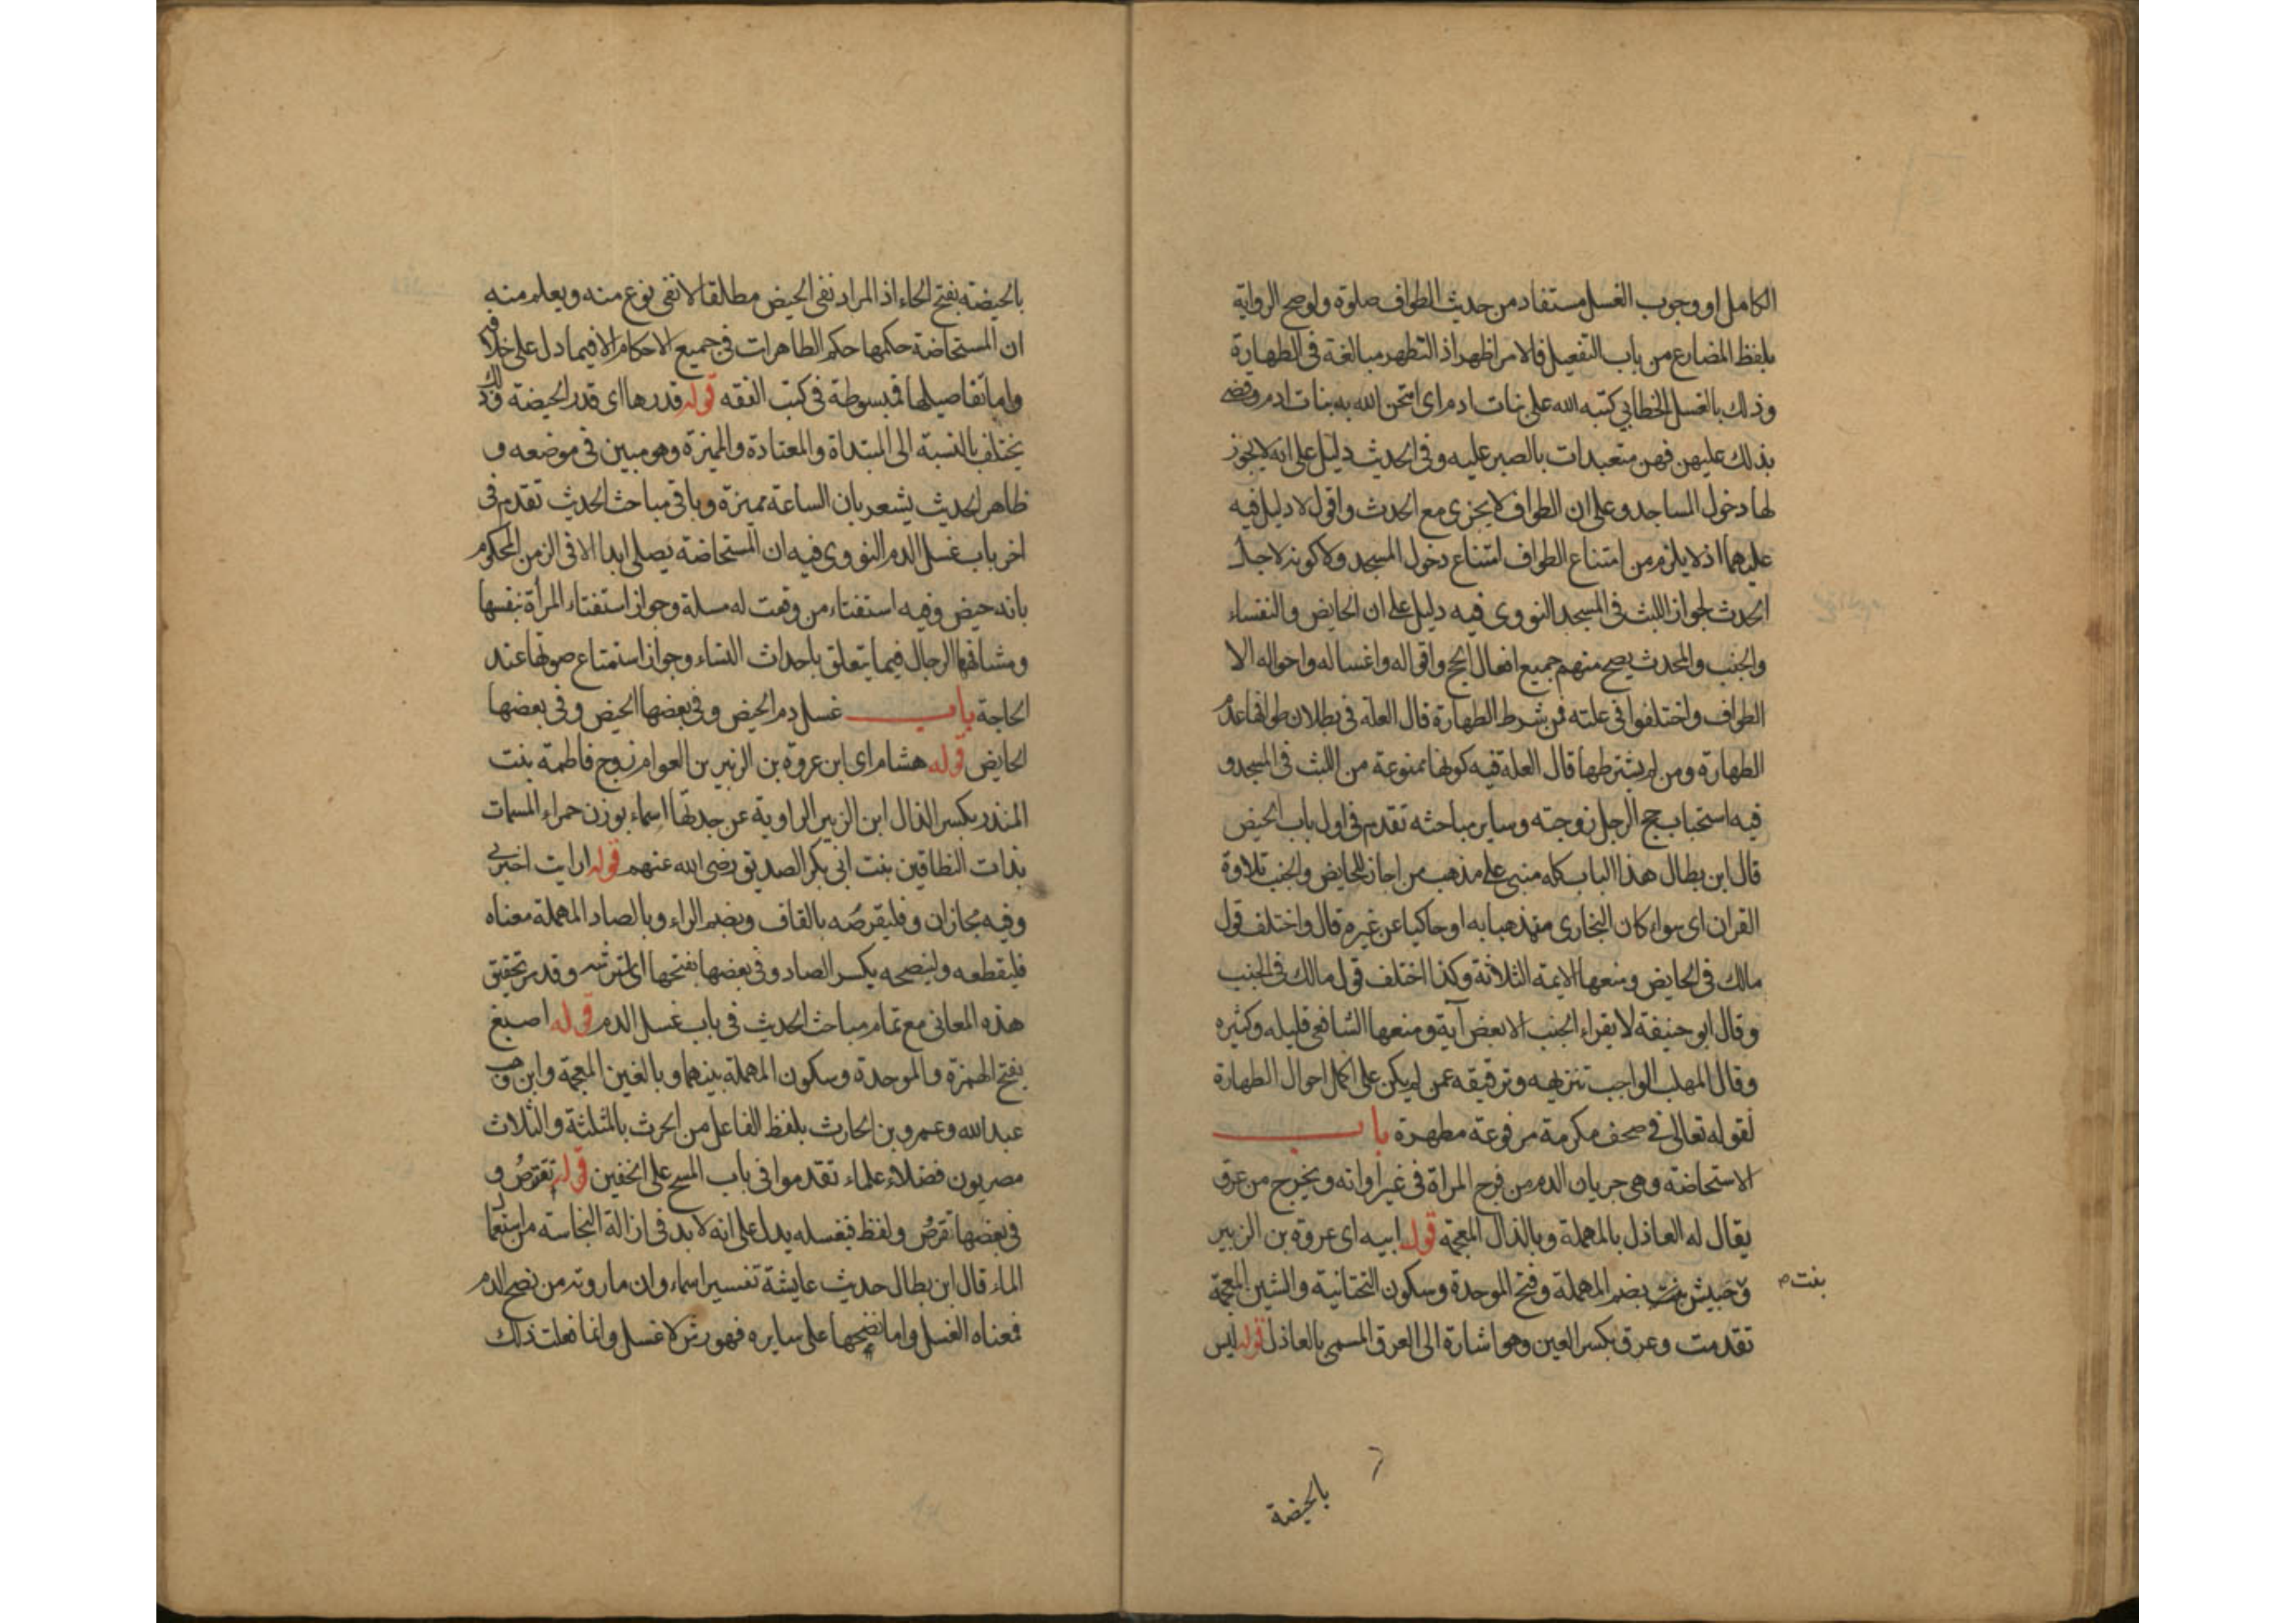 الكامل او وجوب الغسل مستفاد من حديث الطواف صلوة ولوصح الرواية
بلفظ المضارع من باب التفعيل فالامر اظهر اذ التطهر مبالغة فى الطهارة
وذلك بالغسل الخطابي كتبه الله على بنات ادم اى امتحن الله به بنات ادم وقضى
بذلك عليهن فهن متعبدات بالصبر عليه وفى الحديث دليل على انه لا يجوز
لها دخول المساجد وعلى ان الطواف لا يجزى مع الحدث واقول لا دليل فيه
عليهما اذ لا يلزم من امتناع الطواف امتناع دخول المسجد ولا كونه لاجل
الحدث لجواز اللبث فى المسجد النووى فيه دليل على ان الحايض والنفساء
والجنب والمحدث يصح منهم جميع افعال الحج واقواله واغساله واحواله الا
الطواف واختلفوا فى علته فمن شرط الطهارة قال العلة فى بطلان طوافها عدم
الطهارة ومن لم يشترطها قال العلة فيه كونها ممنوعة من اللبث فى المسجد و
فيه استحباب حج الرجل زوجته وساير مباحثه تقدم فى اول باب الحيض
قال ابن بطال هذا الباب كله مبنى على مذهب من اجاز للحايض والجنب تلاوة
القران اى سواء كان البخارى متمذهبا به او حاكيا عن غيره قال واختلف قول
مالك فى الحايض ومنعها الايمة الثلاثة وكذا اختلف قول مالك فى الجنب
وقال ابو حنيفة لا يقراء الجنب الا بعض آية ومنعها الشافعى قليله وكثيره
وقال المهلب الواجب تنزيهه وترفيعه عمن لم يكن على اكمل احوال الطهارة
لقوله تعالى فى صحف مكرمة مرفوعة مطهرة باب
الاستحاضة وهى جريان الدم من فرج المراة فى غير اوانه ويخرج من عرق
يقال له العاذل بالمهملة وبالذال المعجمة قوله ابيه اى عروة بن الزبير
وحبيش بنت بضم المهملة وفتح الموحدة وسكون التحتانية والشين المعجمة
بنت م
تقدمت وعرق بكسر العين وهو اشارة الى العرق المسمى بالعاذل قوله ليس
بالحيضة
بالحيضة بفتح الحاء اذ المراد نفى الحيض مطلقا لا نفى نوع منه ويعلم منه
ان المستحاضة حكمها حكم الطاهرات فى جميع الاحكام الا فيما دل على خلافه
واما تفاصيلها فمبسوطة فى كتب الفقه قوله قدرها اى قدر الحيضة وذلك
يختلف بالنسبة الى المبتداة والمعتادة والمميزة وهو مبين فى موضعه و
ظاهر الحديث يشعر بان الساعة مميزة وباقى مباحث الحديث تقدم فى
اخر باب غسل الدم النووى فيه ان المستحاضة يصلى ابدا الا فى الزمن المحكوم
بانه حيض وفيه استفتاء من وقعت له مسلة وجواز استفتاء المرأة بنفسها
ومشافهتها الرجال فيما يتعلق باحداث النساء وجواز استمتاع صوتها عند
الحاجة باب غسل دم الحيض وفى بعضها الحيض وفى بعضها
الحايض قوله هشام اى ابن عروة بن الزبير بن العوام زوج فاطمة بنت
المنذر بكسر الذال ابن الزبير الراوية عن جدتها اسماء بوزن حمراء المسمات
بذات النطاقين بنت ابى بكر الصديق رضى الله عنهم قوله ارايت اخبرنى
وفيه مجازان وفليقرصُه بالقاف وبضم الراء وبالصاد المهملة معناه
فليقطعه ولينضحه بكسر الضاد وفى بعضها بفتحها اى لترشه وقد مر تحقيق
هذه المعانى مع تمام مباحث الحديث فى باب غسل الدم قوله اصبغ
بفتح الهمزة والموحدة وسكون المهملة بينهما وبالغين المعجمة وابن وهب
عبد الله وعمرو بن الحارث بلفظ الفاعل من الحرث بالمثلثة والثلاث
مصريون فضلاء علماء تقدموا فى باب المسح على الخفين قوله تقترصُ و
فى بعضها تقرصُ ولفظ فيغسله يدل على انه لا بد فى ازالة النجاسة من استعمال
الماء قال ابن بطال حديث عايشة تفسير اسماء وان ما روته من نضح الدم
فمعناه الغسل واما نضحها على سايره فهو رش لا غسل وانما فعلت ذلك